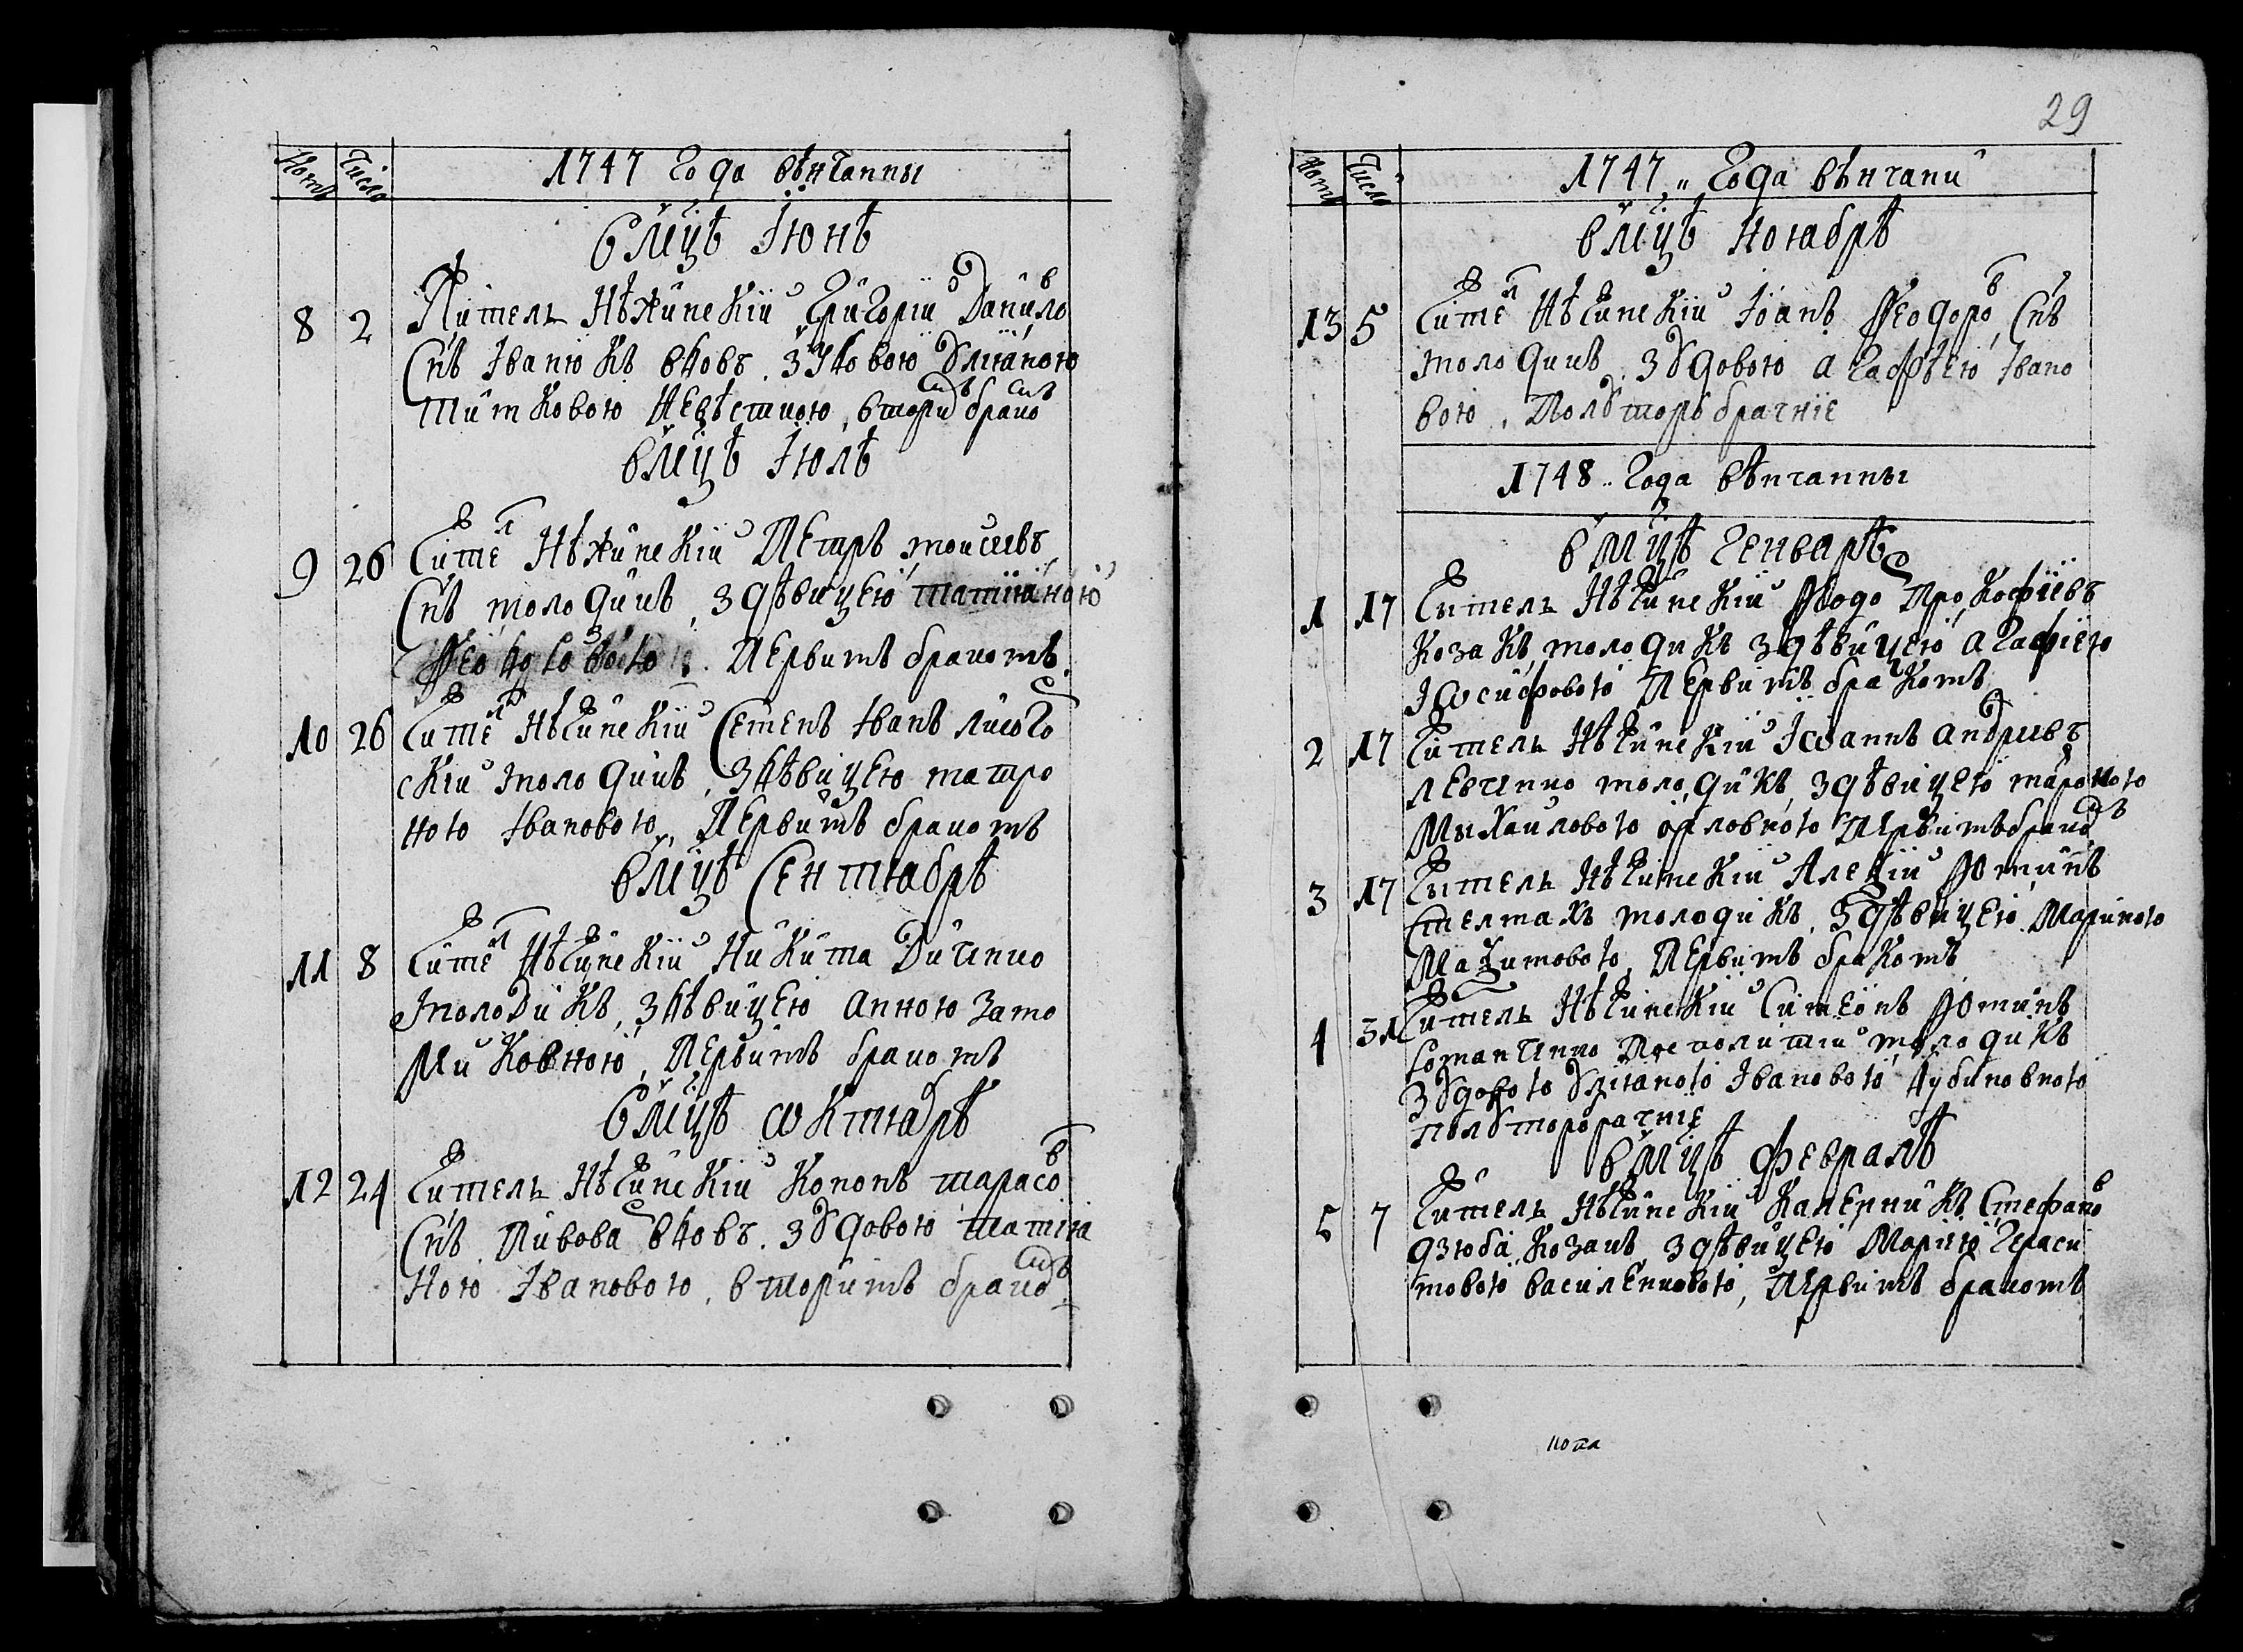 Номѣ Число 1747 года вѣнчанны
в мцѣ Іюнѣ
8 2 Житель Нѣжинскїй Григорїй Данило в
Снъ Иванюкъ вдовъ, з удовою Улїяною
Титковою Невѣстною, втори браком
в мцѣ Іюлѣ
9 26 Жите л Нѣжинскїй Петръ моисеевъ
Снъ молодикъ, з дѣвицею татїяною
Первимъ бракомъ
10 26 Жите л Нѣжинскїй Семенъ Иванъ Лисого
скїй молодикъ, з дѣвицею матро
ною Ивановою, Первимъ бракомъ
в мцѣ Сентябрѣ
11 8 Жите л Нѣжинскїй Никита Дичнко
молодикъ, з дѣвицею анною Зато
Первимъ бракомъ
в мцѣ ѡктябрѣ
12 24 Житель Нѣжинскїй Кононъ тарасо в
Снъ Пивова вдовъ, з удовою татїя
ною Ивановою, вторимъ браком
29
Номѣ Число 1747 „ Года вѣнчани
в мцѣ ноябрѣ
13 5 Жите л Нѣжинскїй Іоанъ Ѳеодоро в Снъ
молодикъ, з удовою агафѣею Ивано
вою, Полуторобрачнїе
1748 „ года вѣнчанны
в мцѣ генварѣ
1 17 Житель Нѣжинскїй Ѳеодо Прокофїевъ
козакъ молодикъ з дѣвицею агафїею
Іѡсифовою Первимъ бракомъ
2 17 Житель Нѣжинскїй Іѡаннъ андреевъ
левчнко молодикъ, з дѣвицею
Михайловою орловною Первимъ браком
3 17 Житель Нѣжинскїй Алеѯїй Ѳоминъ
Стелмахъ молодикъ, з дѣвицею Мариною
Маѯимовою, Первимъ бракомъ
4 31 Житель Нѣжинскїй Симеонъ Ѳоминъ
романчнко Посполитїй молодикъ
з удовою Улїяною Ивановою дубиновною
полуторобрачнїе
в мцѣ февралѣ
5 7 Житель Нѣжинскїй Каленникъ Стефано в
дзюба козакъ, з дѣвицею Марїею Гераси
мовою василенковою, Первимъ бракомъ